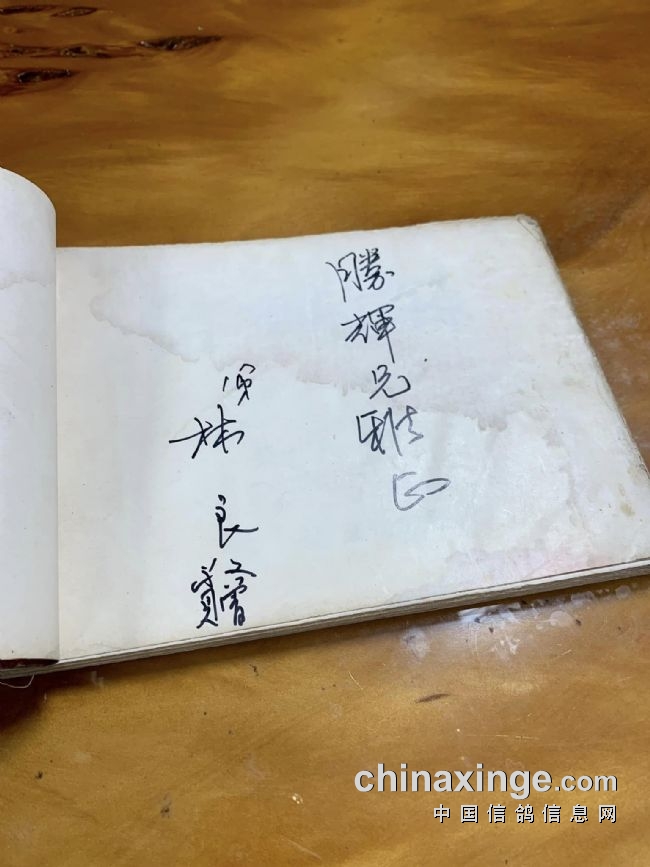 勝輝兄雅正
林良贈
chinaxinge.com
中国信鸽信息网